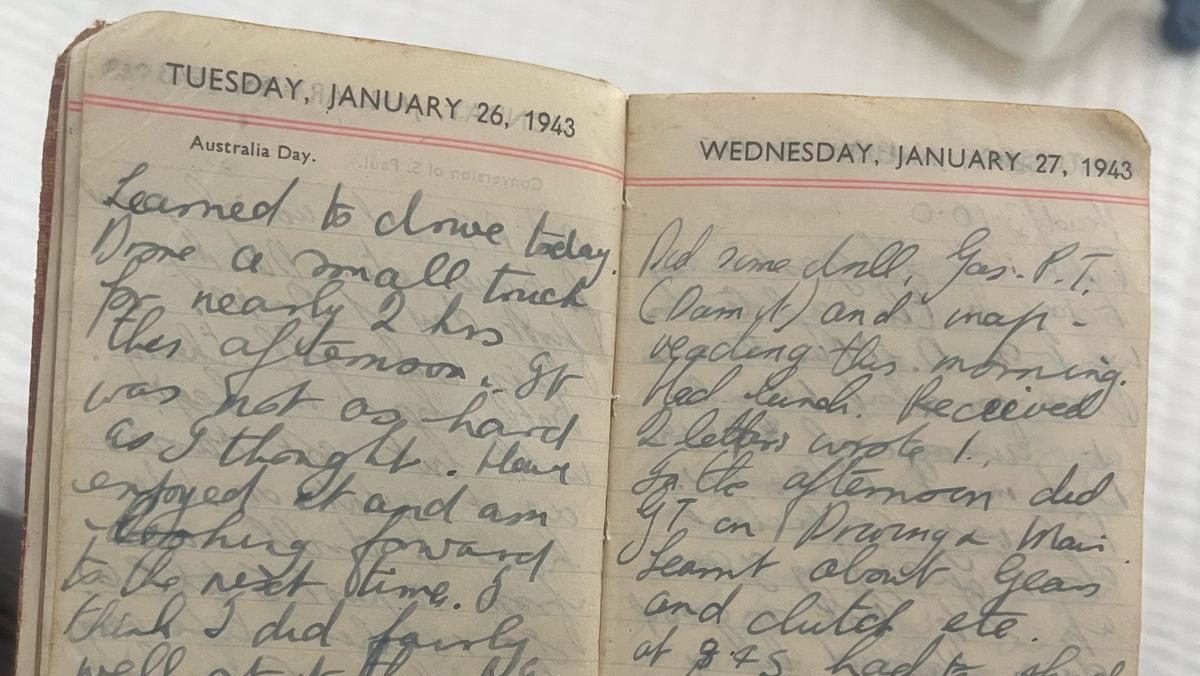 TUESDAY, JANUARY 26, 1943
Australia Day.
Conversion of S. Paul.
Learned to drive today.
Drove a small truck
for nearly 2 hrs
this afternoon. It
was not as hard
as I thought. Have
enjoyed it and am
looking forward
to the next time. I
think I did fairly
well at the
WEDNESDAY, JANUARY 27, 1943
Did some drill, Gas. P.T.
(Damn it) and map-
reading this morning.
Had lunch. Received
2 letters wrote 1.
In the afternoon did
on Driving &
Learnt about Gears
and clutch etc.
at 8.45 had to